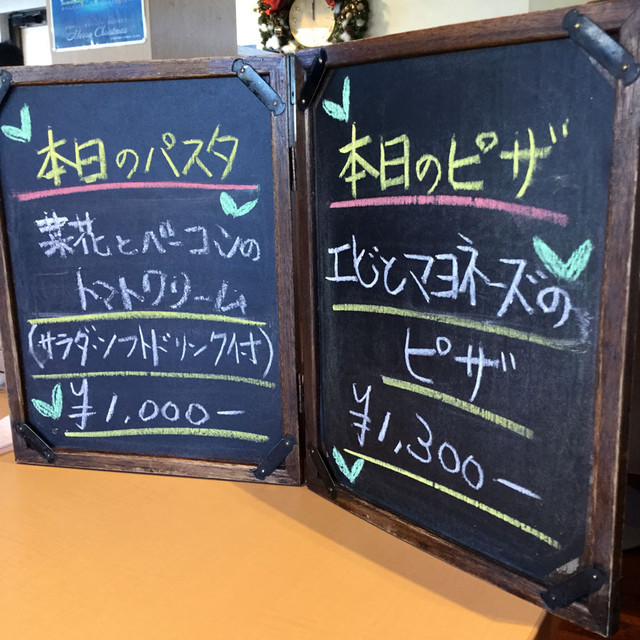 Merry Christmas
本日のパスタ
菜花とベーコンの
トマトクリーム
(サラダ・ソフトドリンク付き)
¥1,000-
本日のピザ
エビとマヨネーズの
ピザ
¥1,300-